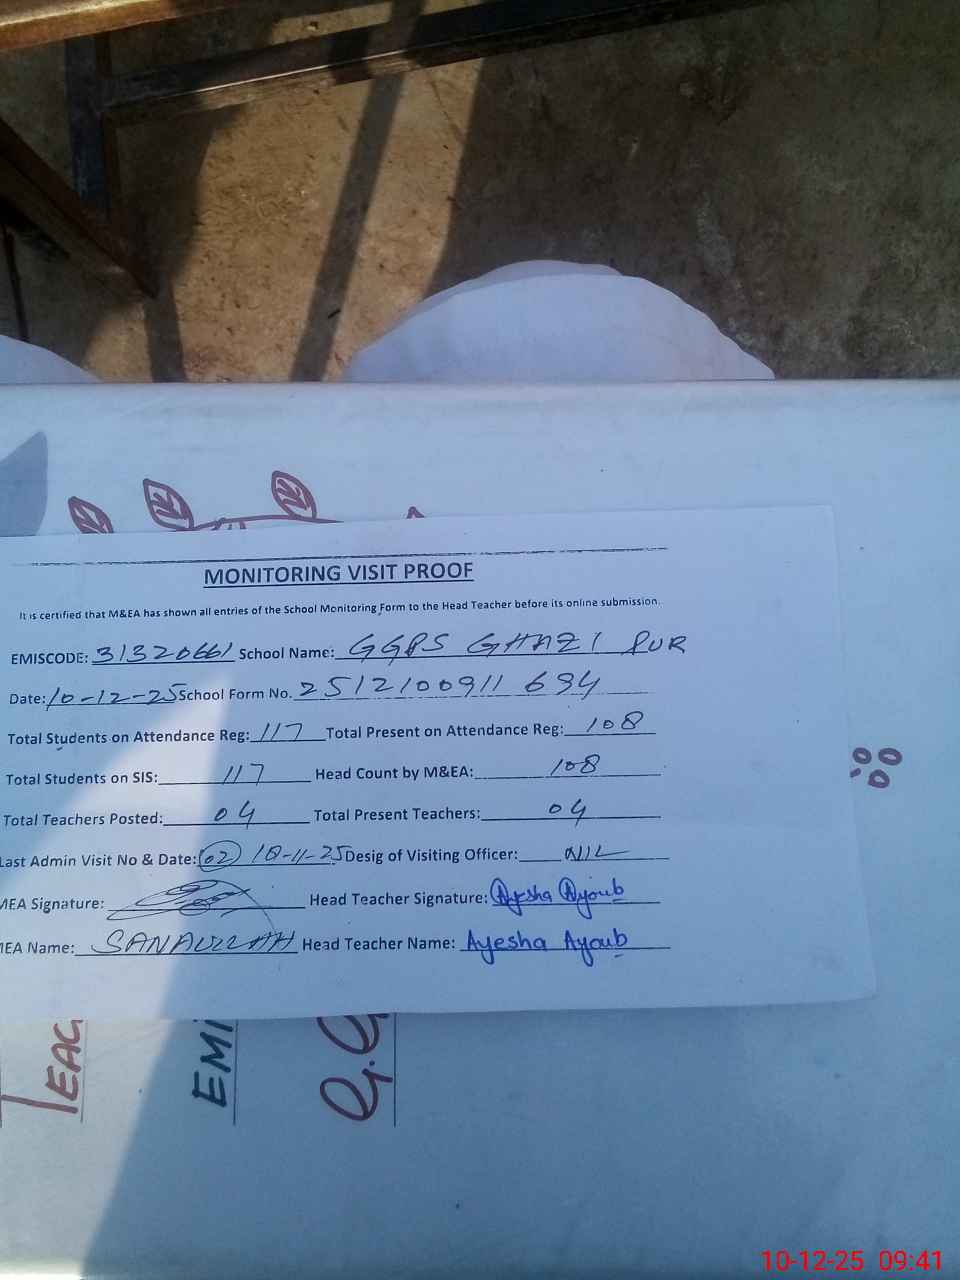 MONITORING VISIT PROOF
It is certified that M&EA has shown all entries of the School Monitoring Form to the Head Teacher before its online submission.
EMISCODE: 31320661 School Name: GGPS GHAZI PUR
Date: 10-12-25 School Form No. 2512100911694
Total Students on Attendance Reg: 117 Total Present on Attendance Reg: 108
Total Students on SIS: 117 Head Count by M&EA: 108
Total Teachers Posted: 04 Total Present Teachers: 04
Last Admin Visit No & Date: 02 10-11-25 Desig of Visiting Officer: NIL
MEA Signature: Head Teacher Signature: Ayesha Ayoub
MEA Name: SANAULLAH Head Teacher Name: Ayesha Ayoub
TEAC
EMI
G.G
10-12-25 09:41